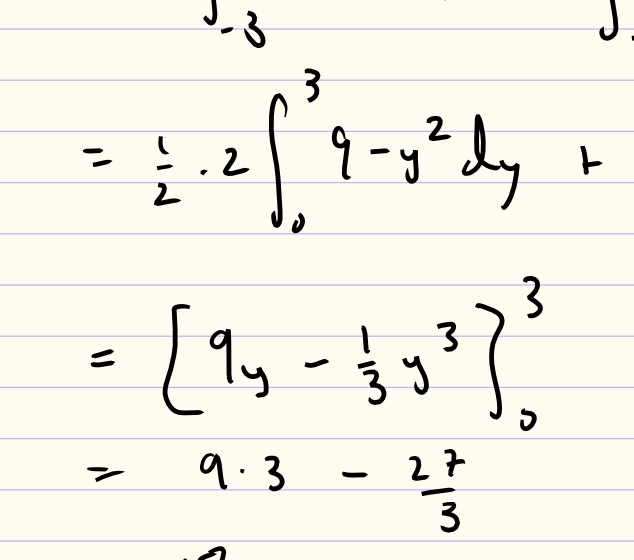 ∫_{-3} ∫
= 1/2 · 2 ∫_0^3 9 - y^2 dy +
= [9y - 1/3 y^3]_0^3
= 9 · 3 - 27/3